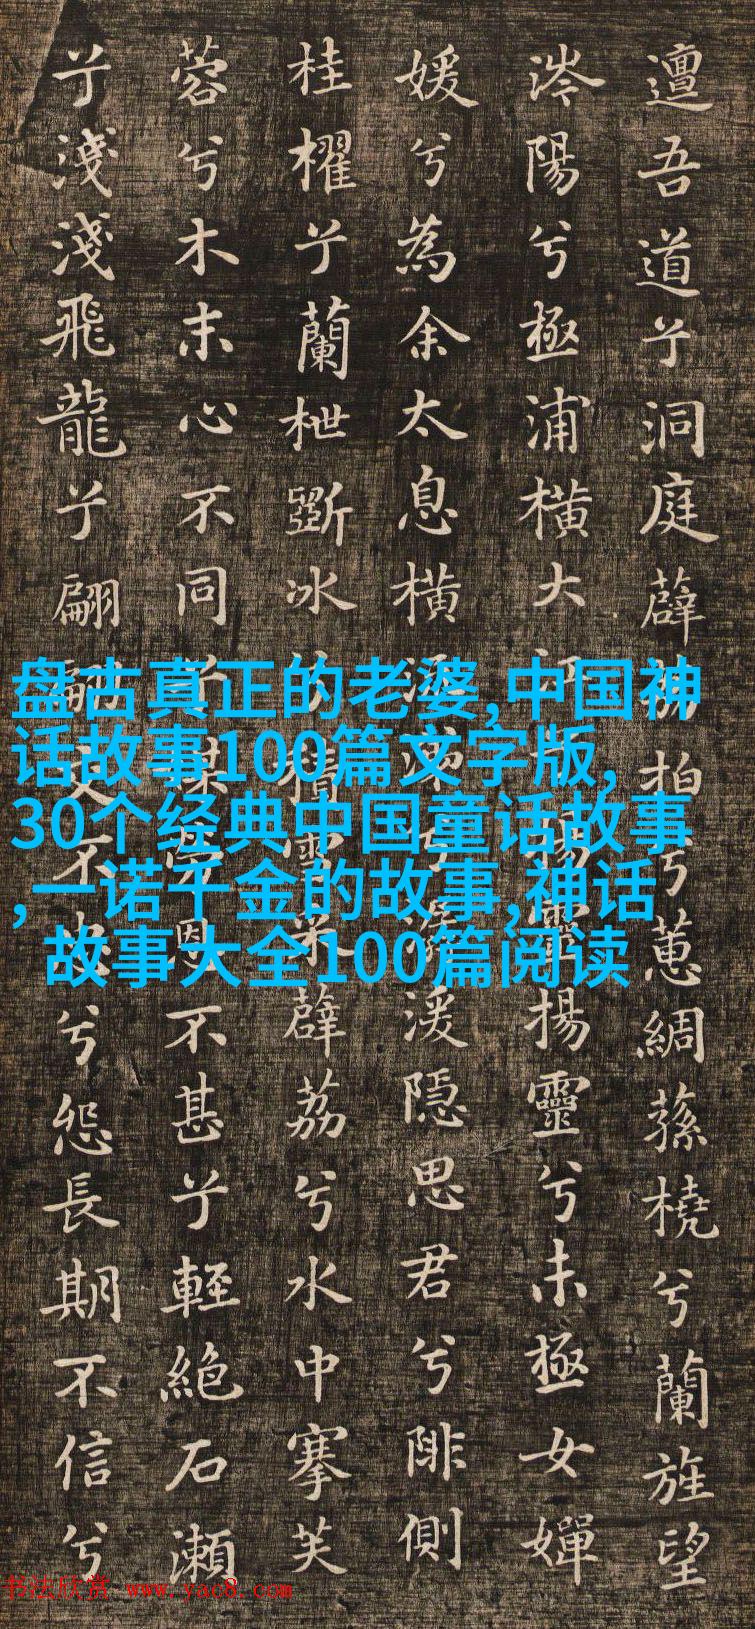 邅吾道兮洞庭薜荔拍兮蕙綢蓀橈兮蘭旌望
涔陽兮極浦橫大江兮揚靈揚靈兮未極女嬋
媛兮為余太息橫流涕兮潺湲隱思君兮陫側
桂櫂兮蘭枻斲冰兮積雪采薜荔兮水中搴芙
蓉兮木末心不同兮媒勞恩不甚兮輕絕石瀨
兮淺淺飛龍兮翩翩交不忠兮怨長期不信兮
盘古真正的老婆,中国神
话故事100篇文字版,
30个经典中国童话故事
,一诺千金的故事,神话
故事大全100篇阅读
书法欣赏 www.yac8.com